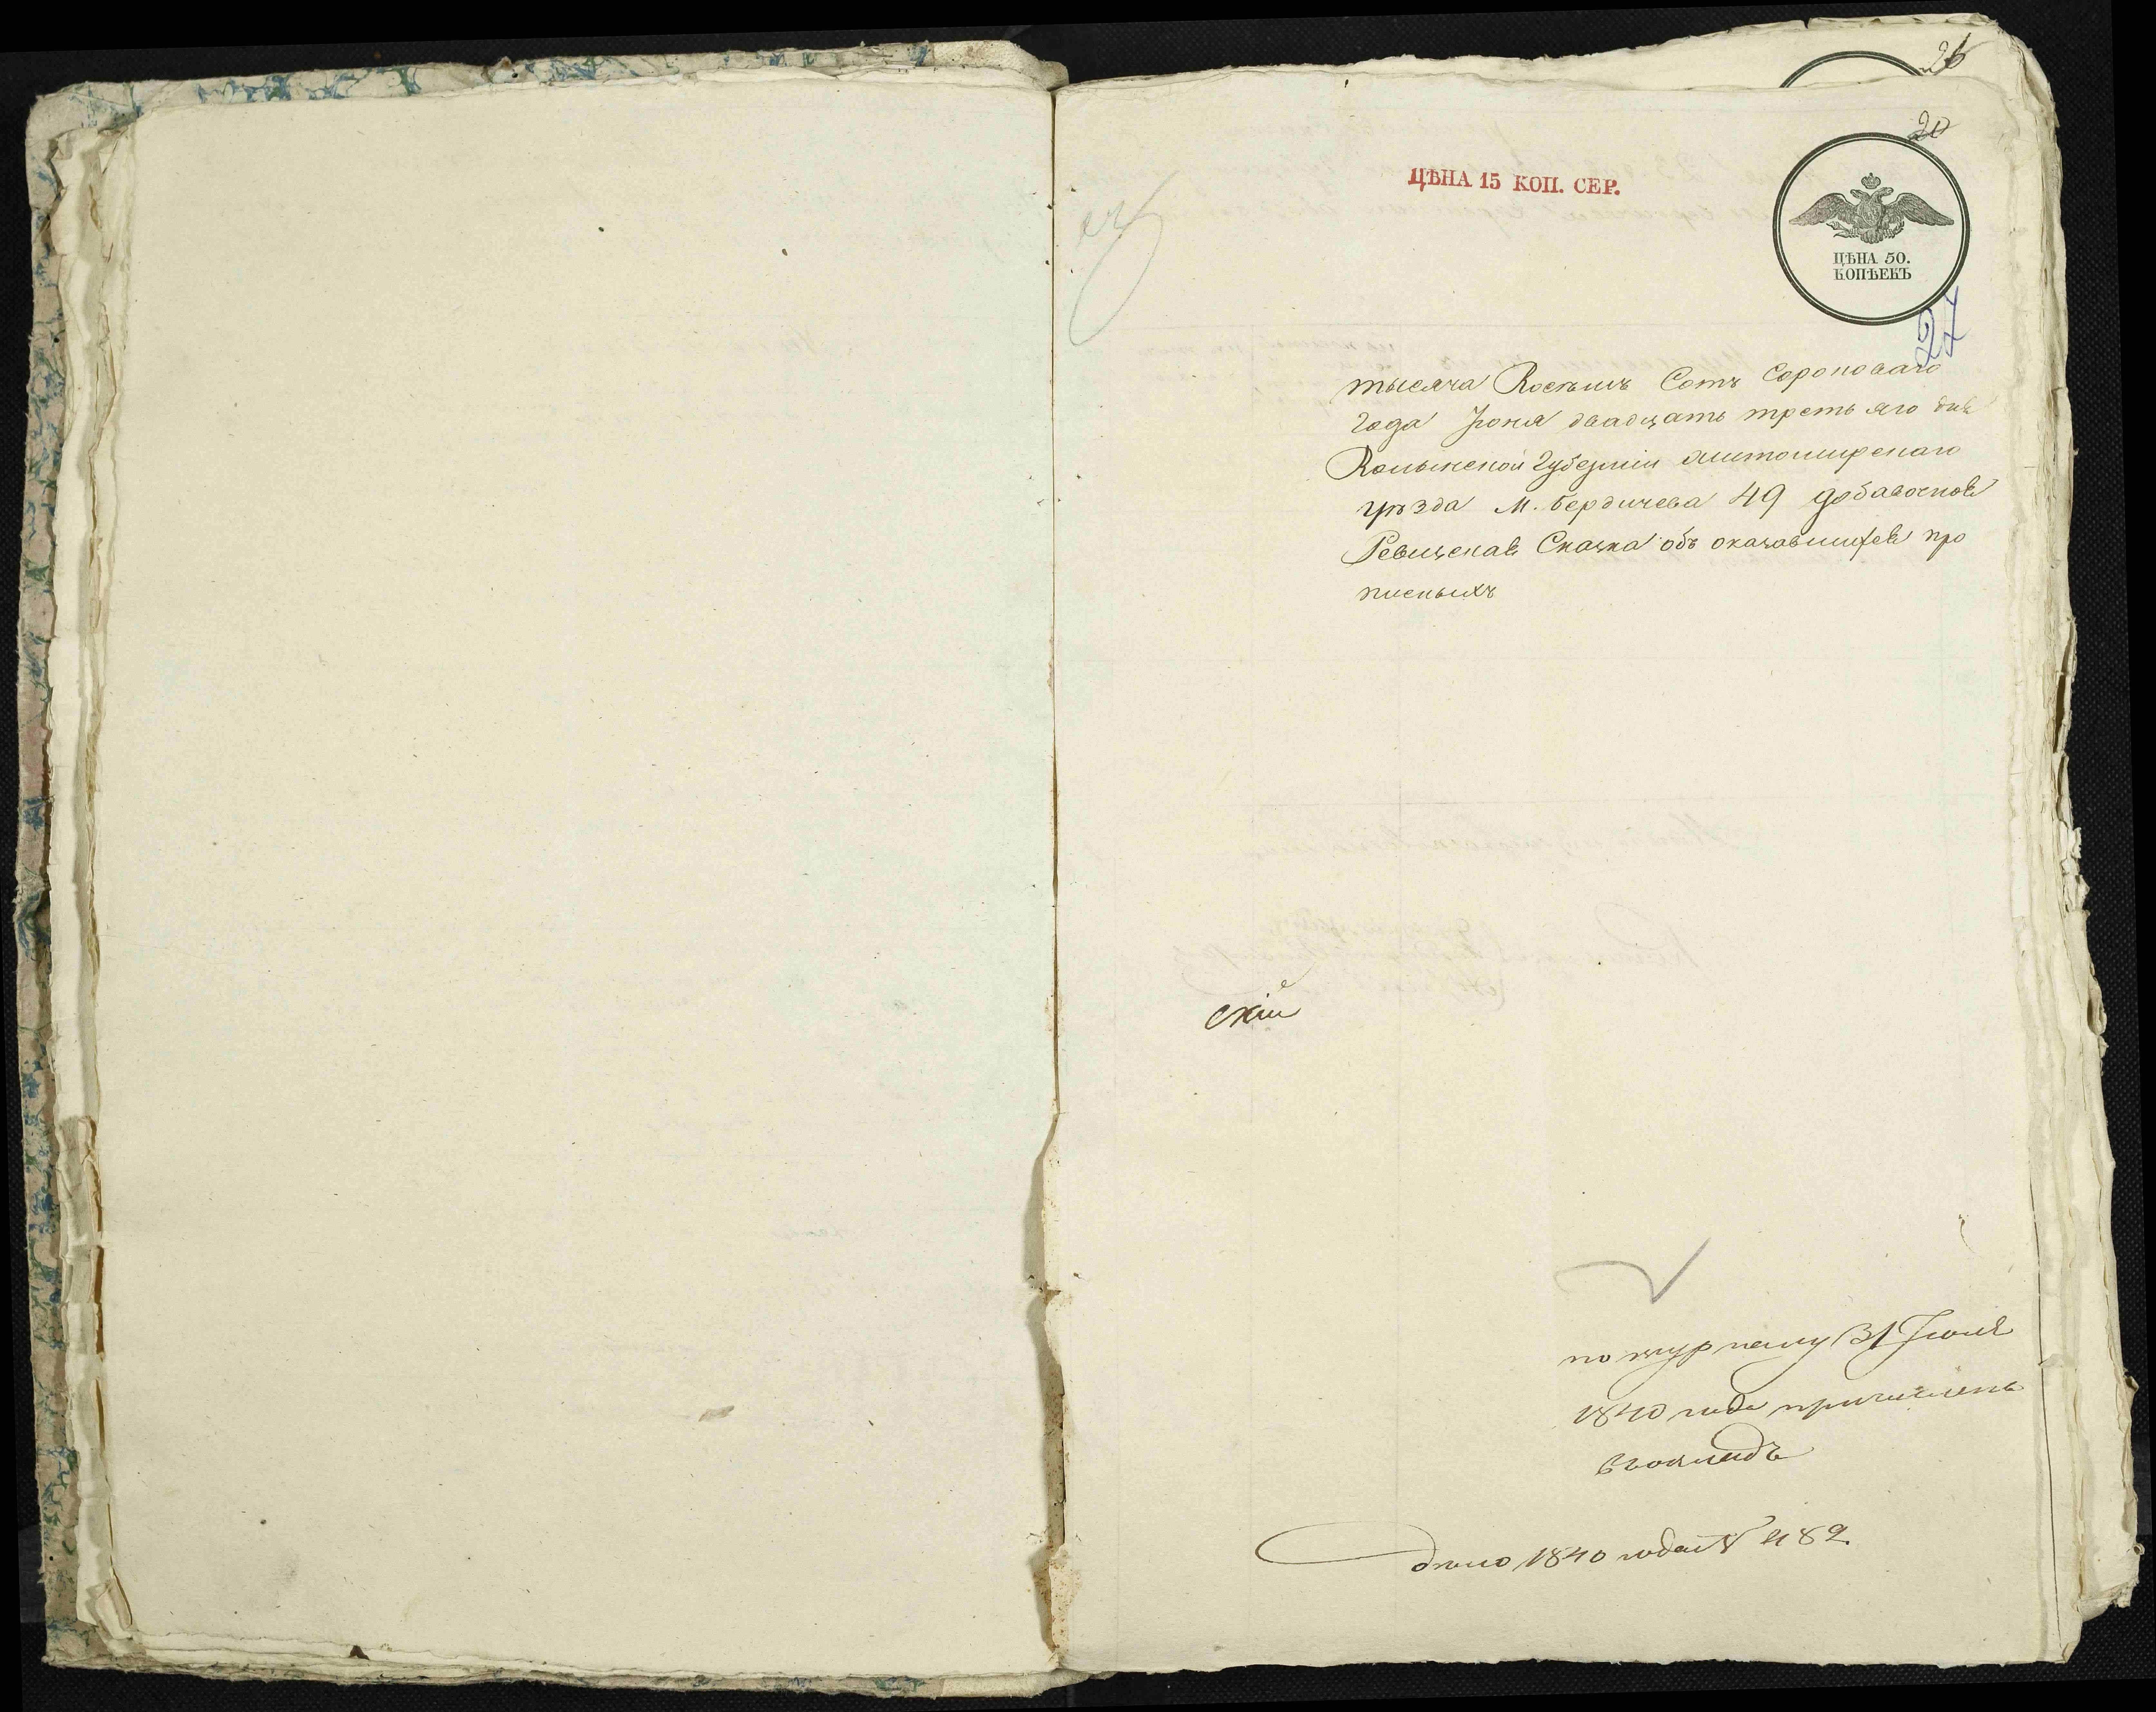 26
20
ЦѢНА 15 КОП. СЕР.
ЦѢНА 50.
КОПѢЕКЪ
27
тысяча Восемь Сотъ Сороковаго
Года Іюня двадцать третьяго дня
Волынской Губерніи Житомирскаго
уѣзда М. Бердичева 49 добавочная
Ревизская Сказка объ оказавшихся про
писныхъ
скій
по журналу 31 Іюля
1840 года причисленъ
въ окладъ
дѣло 1840 года № 482